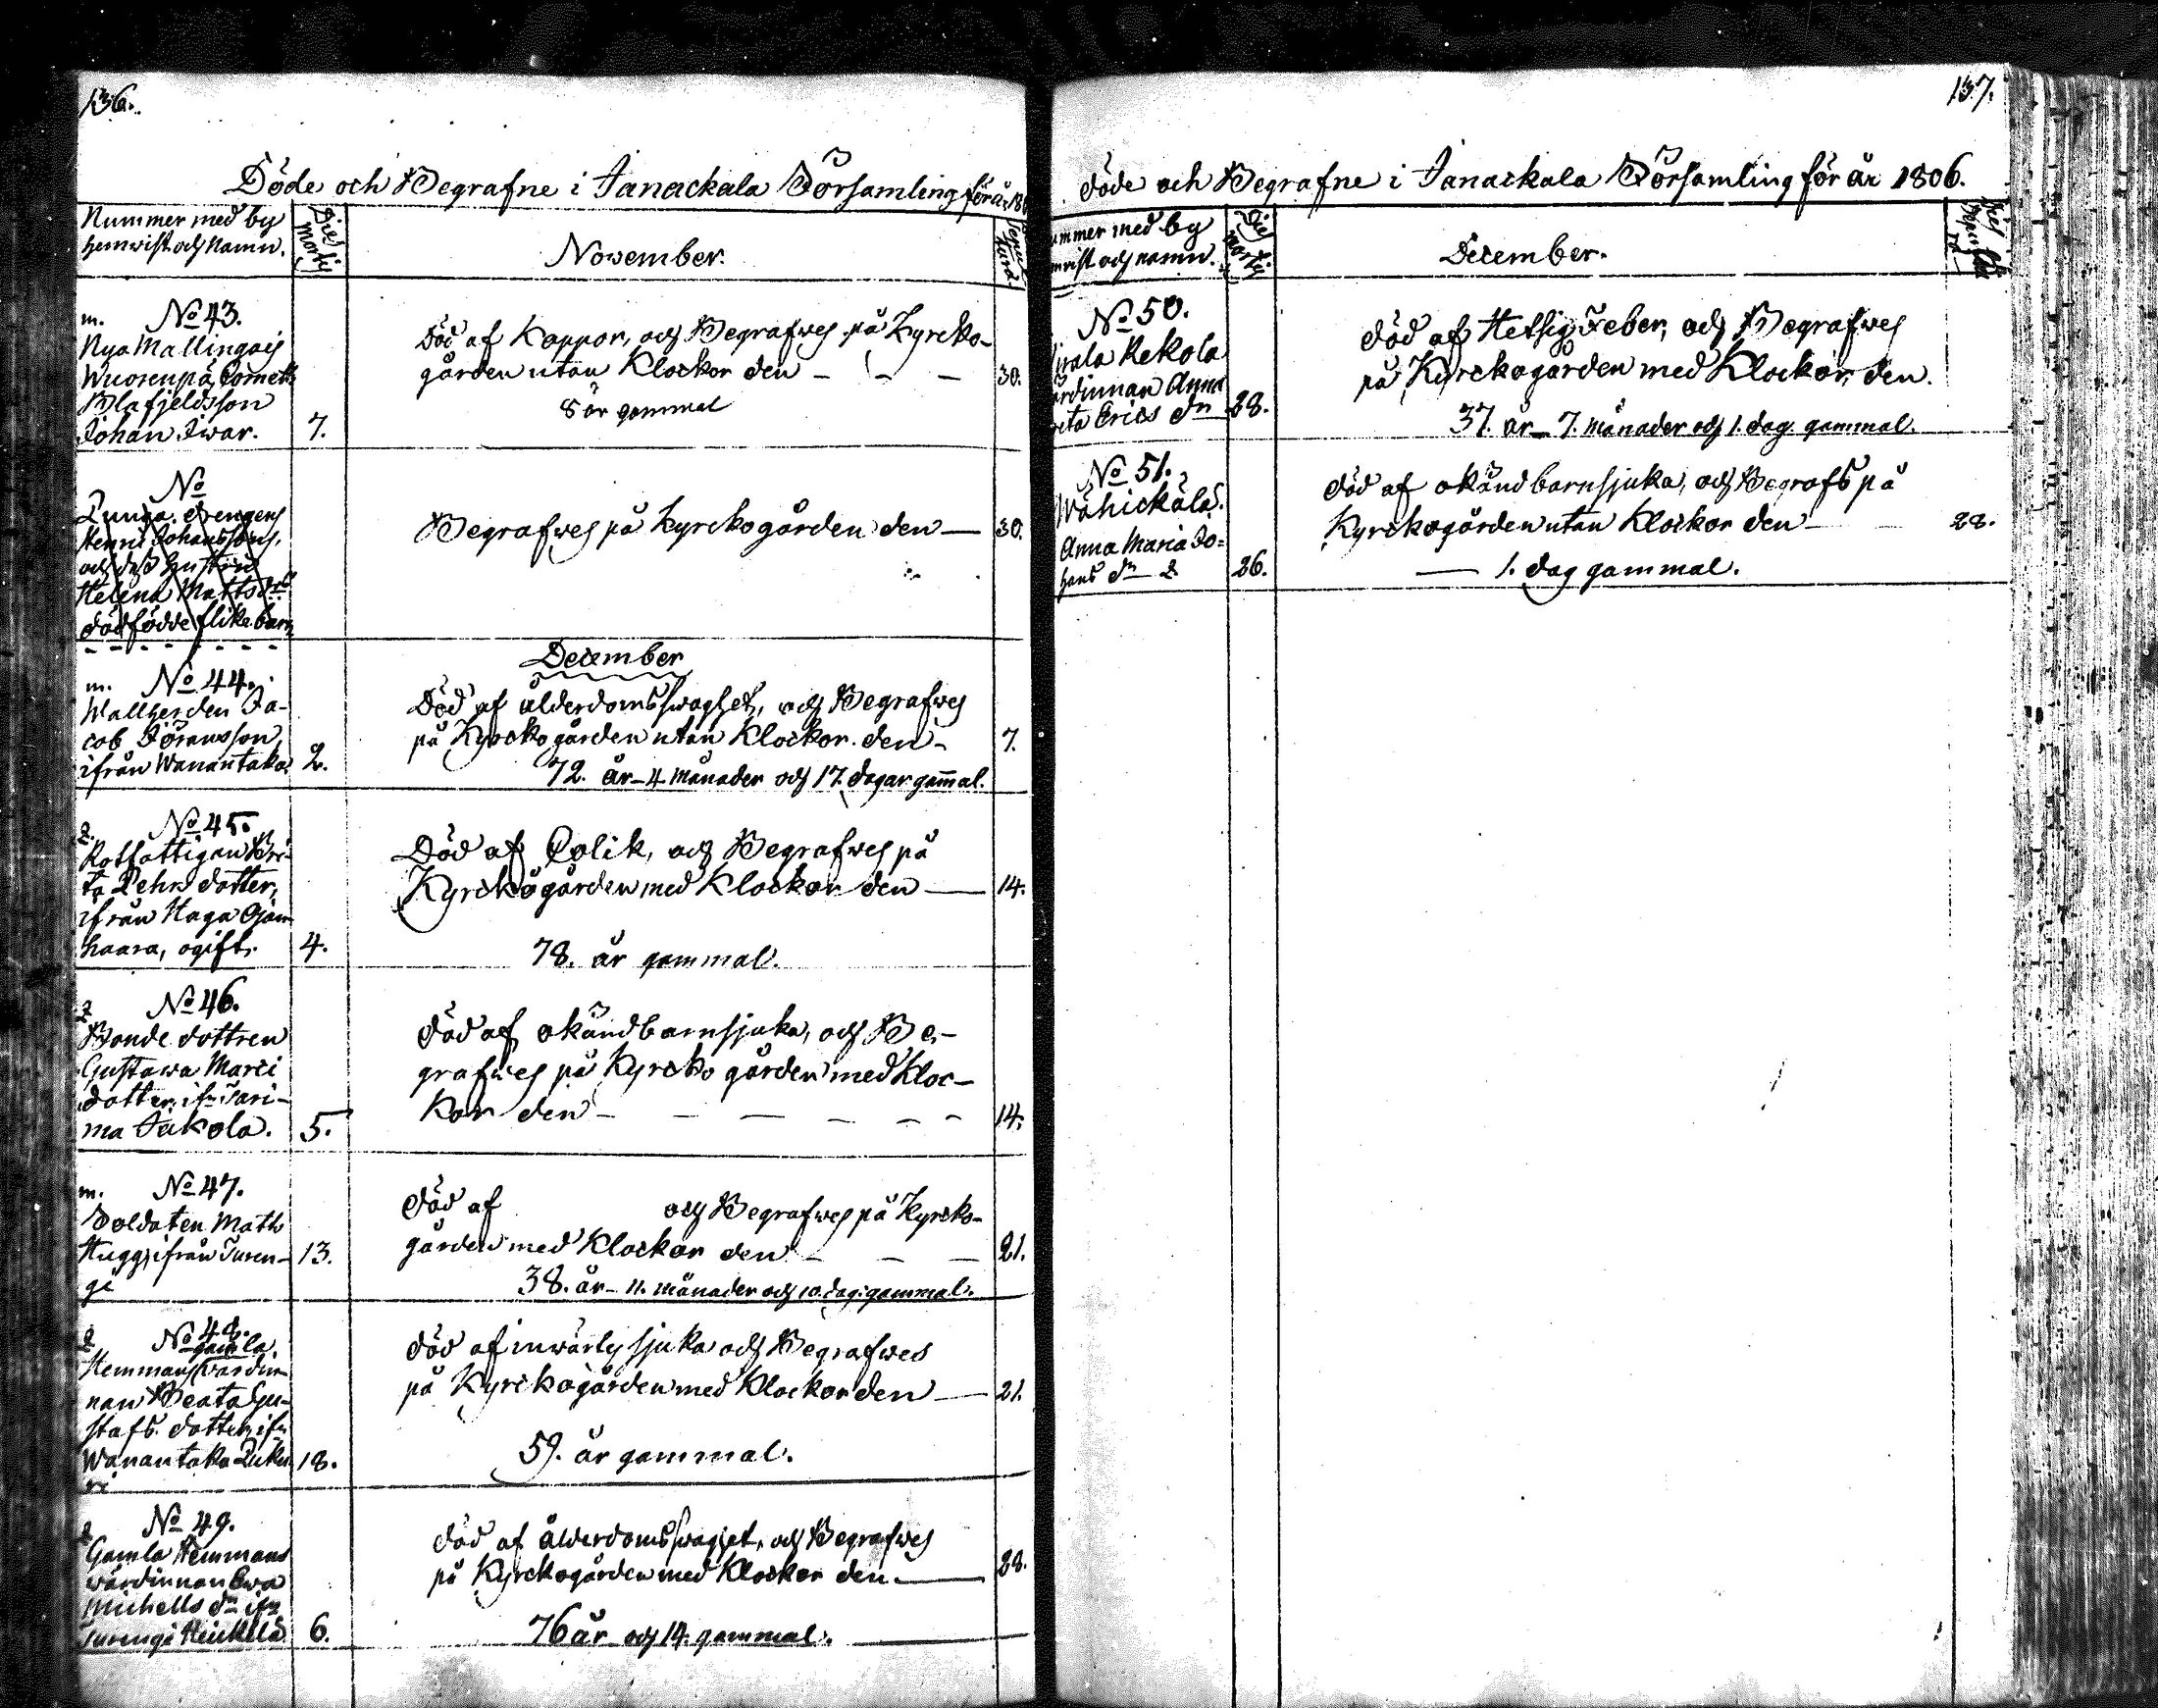 136.
Döde och Begrafne i Janackala Församling för år 18
Nummer med by
hemwist och Namn.
Dies
Mortis
November.
m. No 43.
Nya Mallingais
Wuorenpä Cornets
Blafjeldsson
Johan Iwar.
7.
Död af Koppor, och Begrafwes på Kyrcko-
gården utan Klockor den - - - 30.
8 år gammal
No
Drengens
Henric Johanssons,
och dess Hustru
Helena Matts dr
dödfödde flicke barn
Begrafwes på Kyrckogården den — 30.
December
m. No 44.
Wallherden Ja-
cob Göransson
ifrån Wanantaka
2.
Död af ålderdoms swaghet, och Begrafwes
på Kyrckogården utan Klockor den - 7.
72. år - 4 månader och 17. dagar gam̄al.
q. No 45.
Rotfattigan Bri-
ta Pehrs dotter,
ifrån Haga
haara, ogift.
4.
Död af Colik, och Begrafwes på
Kyrckogården med Klockor den — 14.
78. år gammal.
q No 46.
Bonde dottren
Gustawa Marci
dotter, ifr Tari-
ma Jakola.
5.
död af okänd barnsjuka, och Be-
grafwes på Kyrcko gården med Kloc-
kor den - - - - - - 14.
m. No 47.
Soldaten Math
Hugg, ifrån Turen-
gi
13.
död af och Begrafwes på Kyrcko-
gården med Klockor den - - - 21.
38. år - 11. månader och 10. dag: gammal.
q No 48.
gamla
Hemmans wärdin-
nan Beata Gu-
stafs dotter, ifr
Wanantaka
18.
död af inwärtes sjuka och Begrafwes
på Kyrckogården med Klockor den — 21.
59. år gammal.
q No 49.
Gamla Hemmans
wärdinnan Ewa
Michells dr ifr
Turengi Heickilä
6.
död af ålderdoms swaghet, och Begrafwes
på Kyrckogården med Klockor den — 28.
76 år och 14. gammal.
137.
Döde och Begrafne i Janackala Församling för år 1806.
ummer med by
mwist och namn.
Dies
mortis
December.
No 50.
Rekola
ärdinnan Anna
reta Erics dr
28.
död af Hetsig Feber, och Begrafwes
på Kyrckogården med Klockor, den.
37. år - 7. månader och 1. dag. gammal.
No 51.
Wähickälä.
Anna Maria Jo=
hans dr q
26.
död af okänd barnsjuka, och Begrafs på
Kyrckogården utan Klockor den - - 28.
— 1. dag gammal.